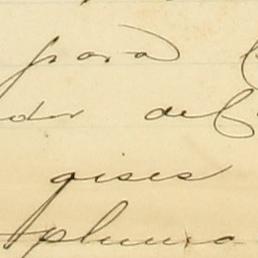 para
der del
gises
pluma